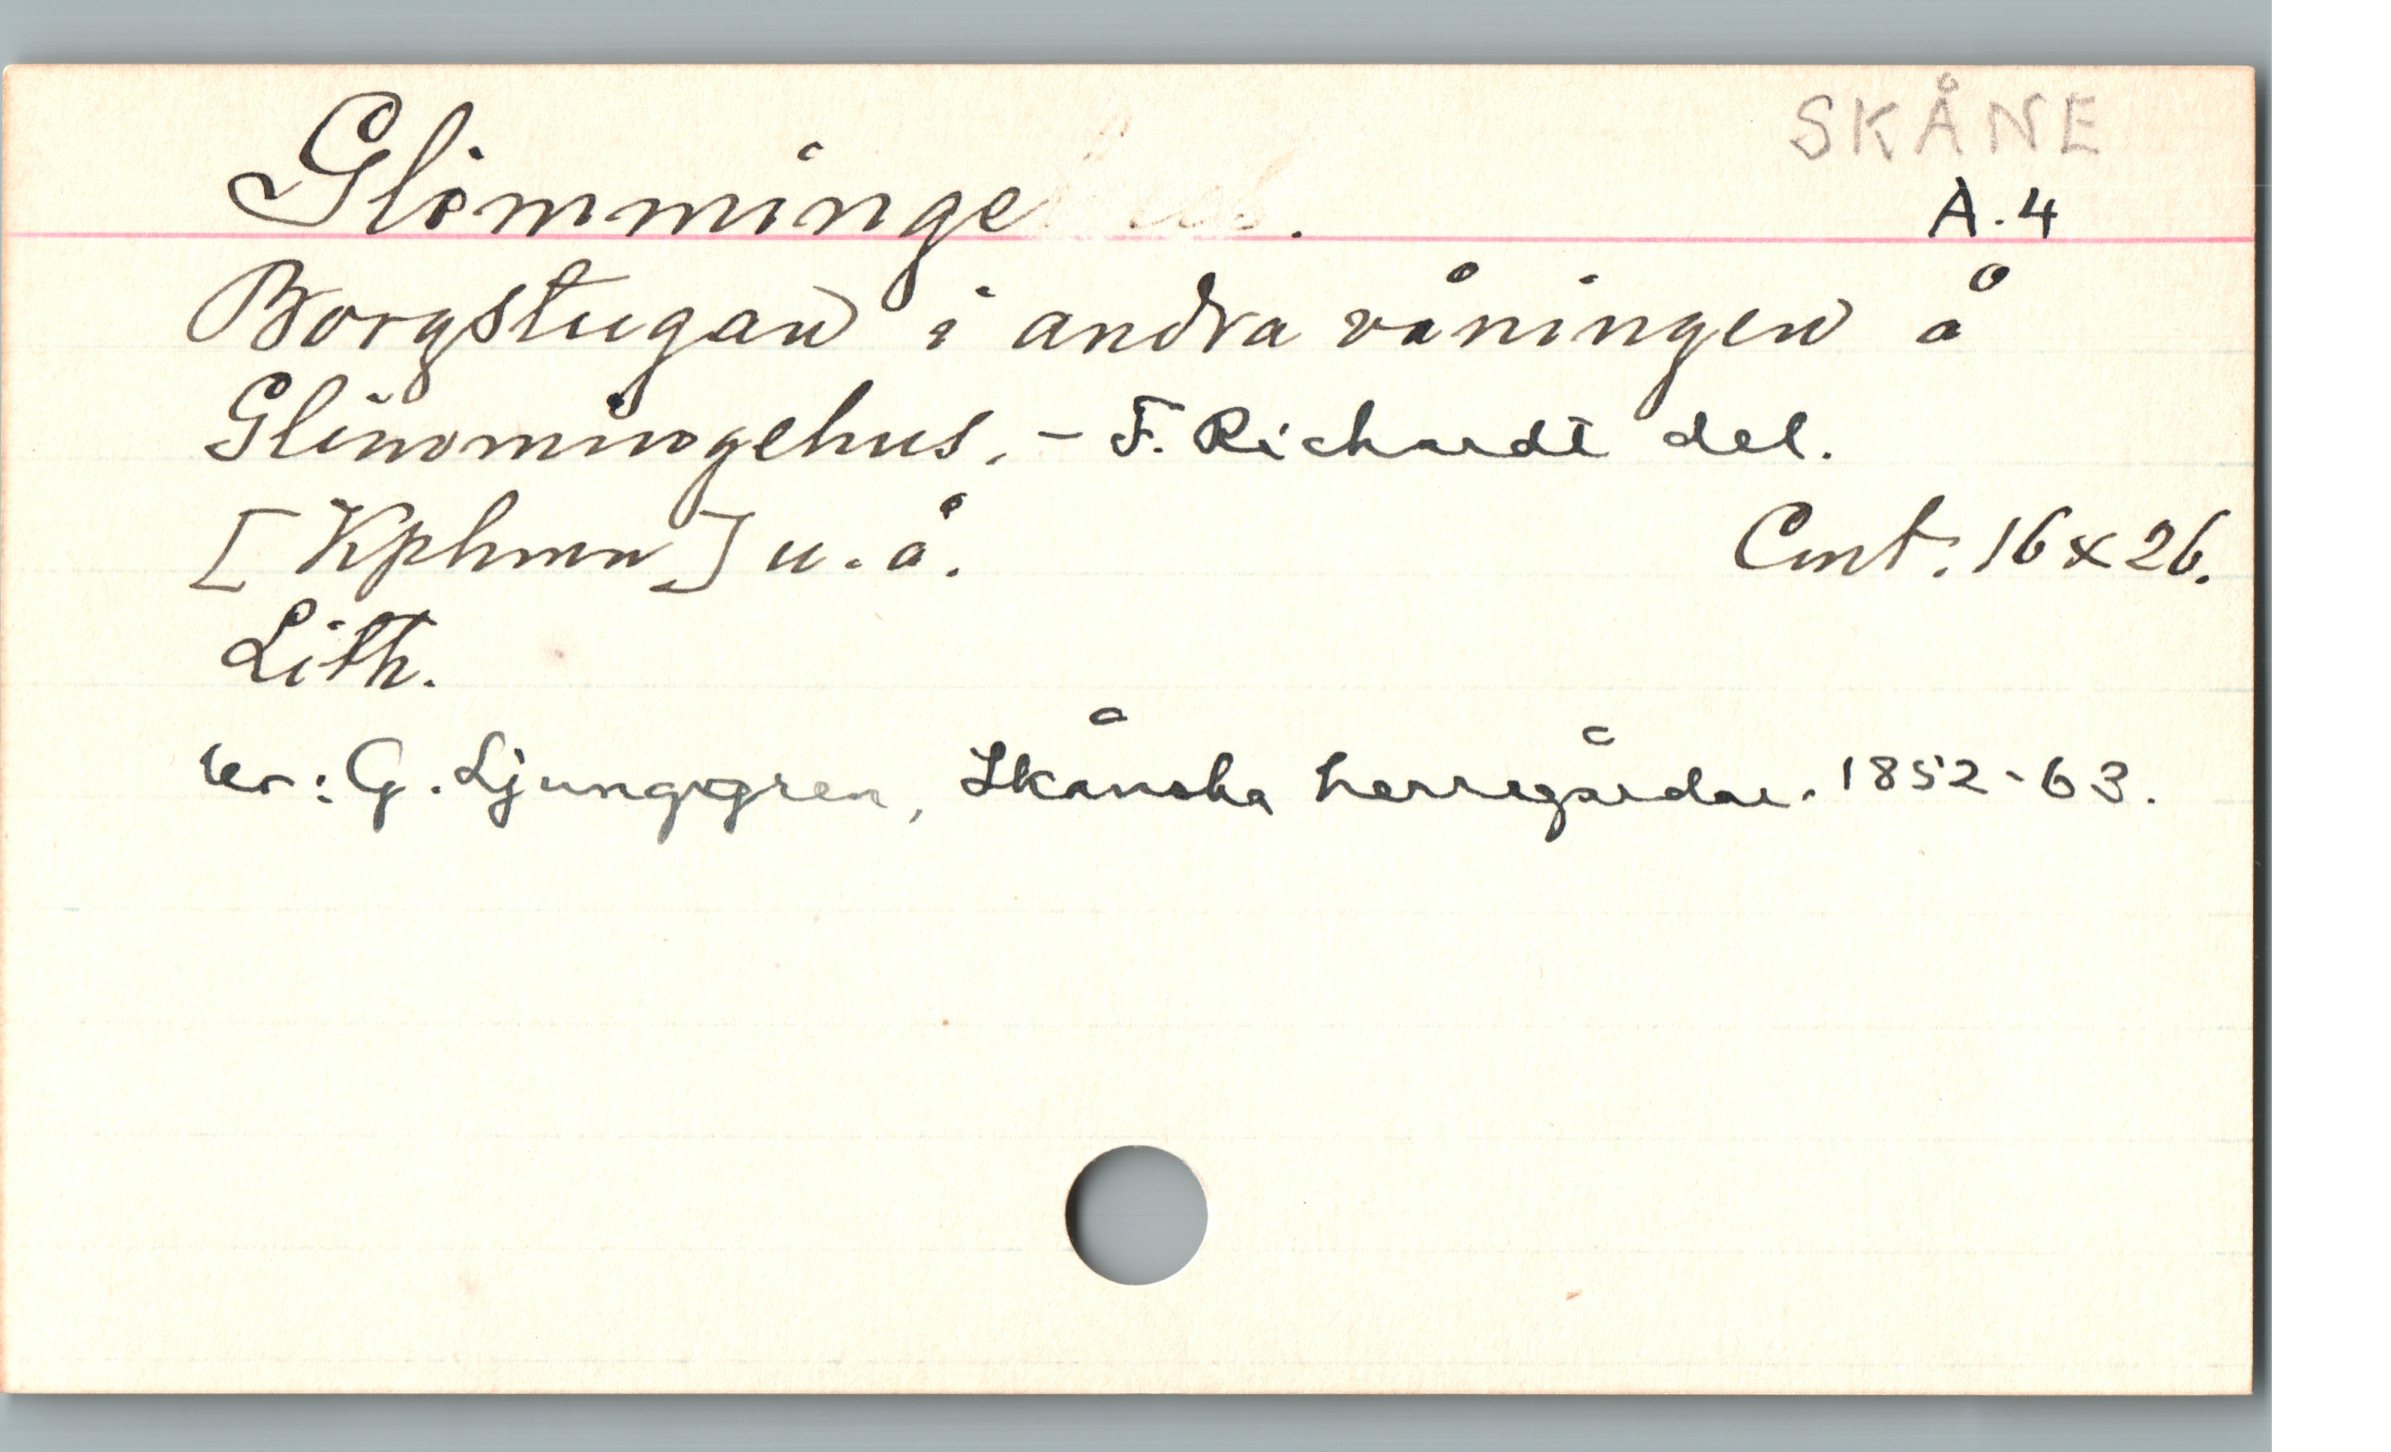 SKÅNE
Glimminge . A.4
Borgstugan i andra våningen å
Glimmingehus. - F. Richardt del.
[Kphmn] u. å. Cmt. 16 x 26.
Lith.
Ur: G. Ljunggren, Skånska herregårdar. 1852-63.